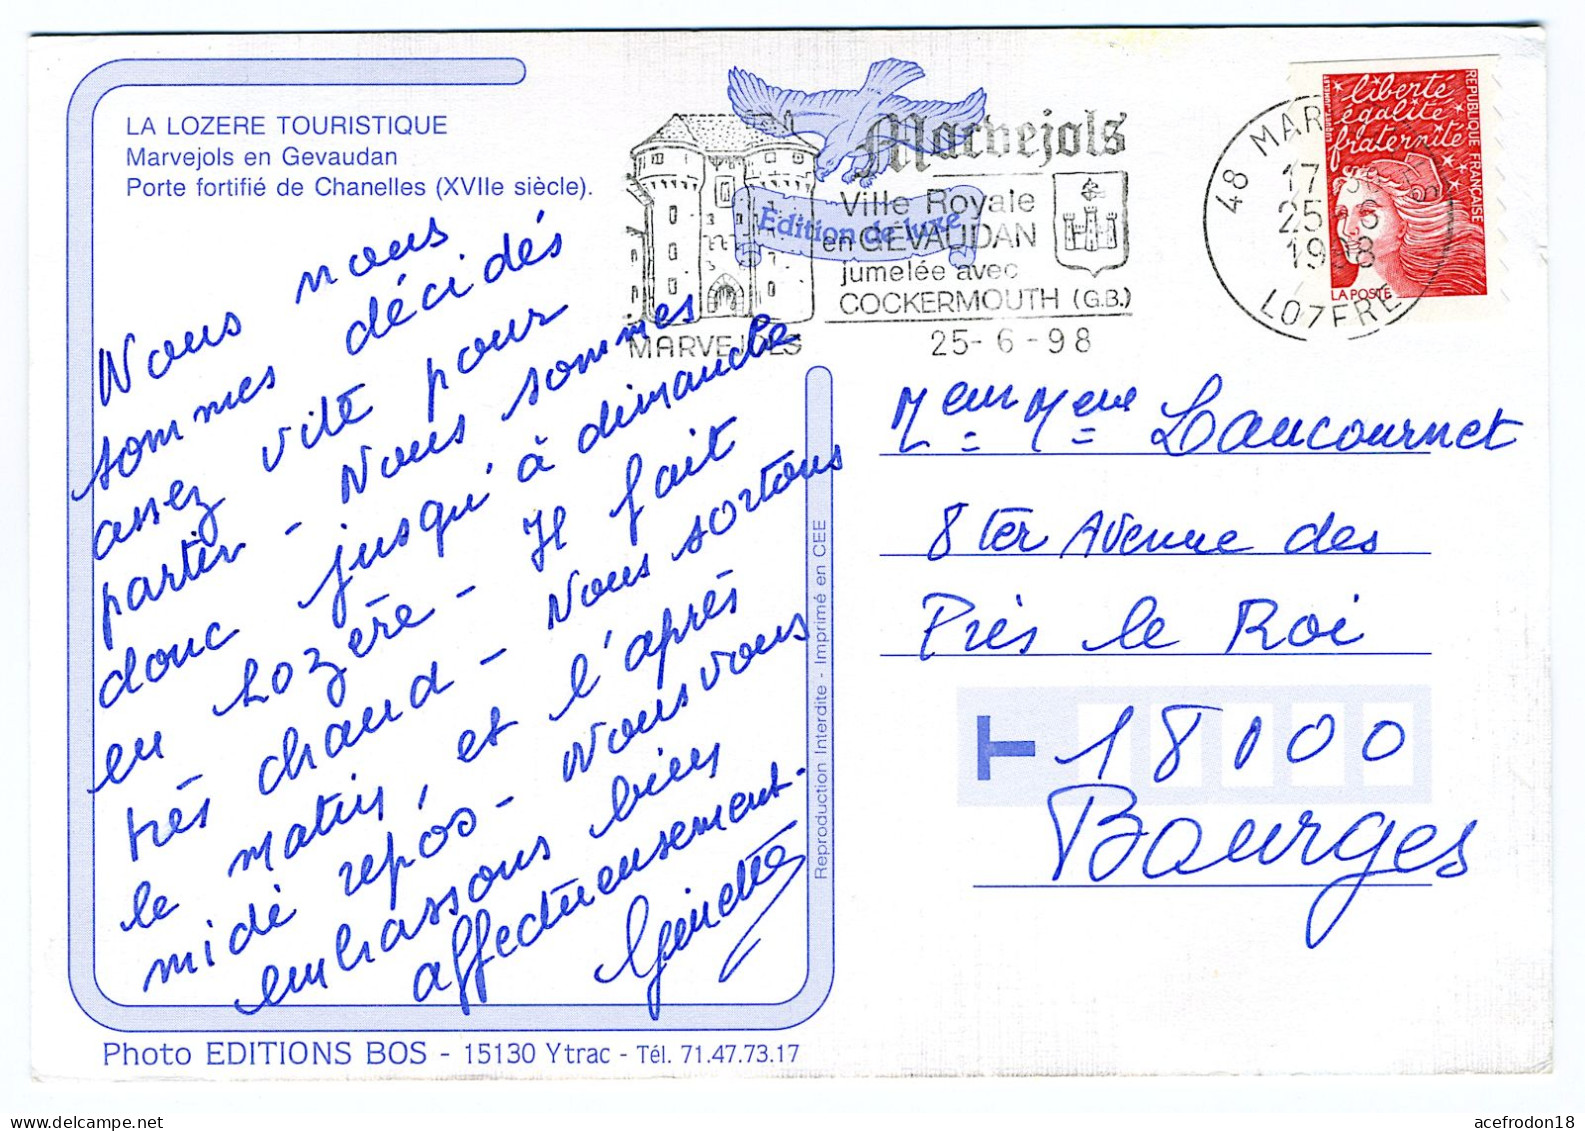 LA LOZERE TOURISTIQUE
Marvejols en Gevaudan
Porte fortifié de Chanelles (XVIIe siècle).
Nous nous
sommes décidés
assez vite pour
partir - Nous sommes
donc jusqu'à dimanche
en Lozère - Il fait
très chaud - Nous sortons
le matin, et l'après
midi repos - Nous vous
embrassons bien
affectueusement.
Ginette
Edition de luxe
Marvejols
Ville Royale
en GEVAUDAN
jumelée avec
COCKERMOUTH (G.B.)
25-6-98
MARVEJOLS
48 MAR
17
25-6
1998
LOZERE
liberté
égalité
fraternité
REPUBLIQUE FRANÇAISE
LA POSTE
Meur Meme Laucournet
8 ter Avenue des
Près le Roi
T 18000
Bourges
Reproduction Interdite - Imprimé en CEE
Photo EDITIONS BOS - 15130 Ytrac - Tél. 71.47.73.17
acefrodon18